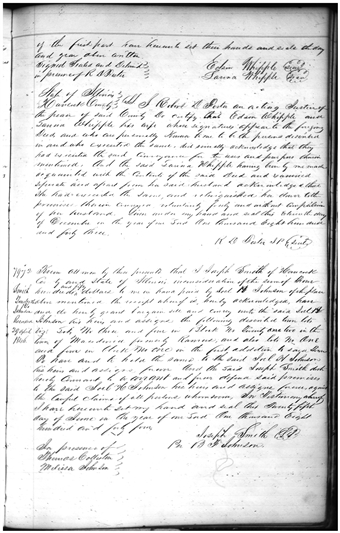 of the first part have hereunto set their hands and seals the day
and year above written
Signed Sealed and Delivered Edson Whipple Seal
in presence of R D Foster Lavina Whipple Seal
State of Illinois
Hancock County I Robert D Foster an acting Justice of
the peace of said County do certify that Edson Whipple and
Lavina Whipple his wife whose signatures appear to the foregoing
Deed and who are personally known to me to be the persons described
in and who executed the same, did severally acknowledge that they
had executed the said Conveyance for the uses and purposes therein
mentioned. And the said Lavina Whipple having been by me made
acquainted with the contents of the said Deed and examined
separate and apart from her said husband acknowledged that
she had executed the same, and relinquished her dower to the
premises therein conveyed voluntarily freely and without compulsion
of her husband. Given under my hand and seal this day
of December in the year of our Lord One thousand Eight hundred
and forty three
R D Foster J P Seal
Know all men by these presents that I Joseph Smith of Hancock
County and State of Illinois in consideration of the sum of One
hundred Dollars to me in hand paid by Joel H Johnson of the place
above mentioned the receipt whereof is hereby acknowledged, have
and do hereby grant bargain sell and convey unto the said Joel H
Johnson his heirs and assigns the following described town lots
viz. Lots No three and four in Block No twenty one two in the
town of Macedonia formerly Ramus, and also lots No One
and four in Block No One in the first addition to said town
To have and to hold the same to the said Joel H Johnson
his heirs and assigns forever. And the said Joseph Smith doth
hereby Covenant to warrant and forever defend said premises
to the said Joel H Johnson his heirs and assigns forever against
the lawful claims of all persons whomsoever, In Testimony whereof
I have hereunto set my hand and seal this twenty fifth
day of June in the year of our Lord One thousand Eight
hundred and forty four
Joseph Smith
In presence of By B F Johnson
Thomas
Melissa Johnson